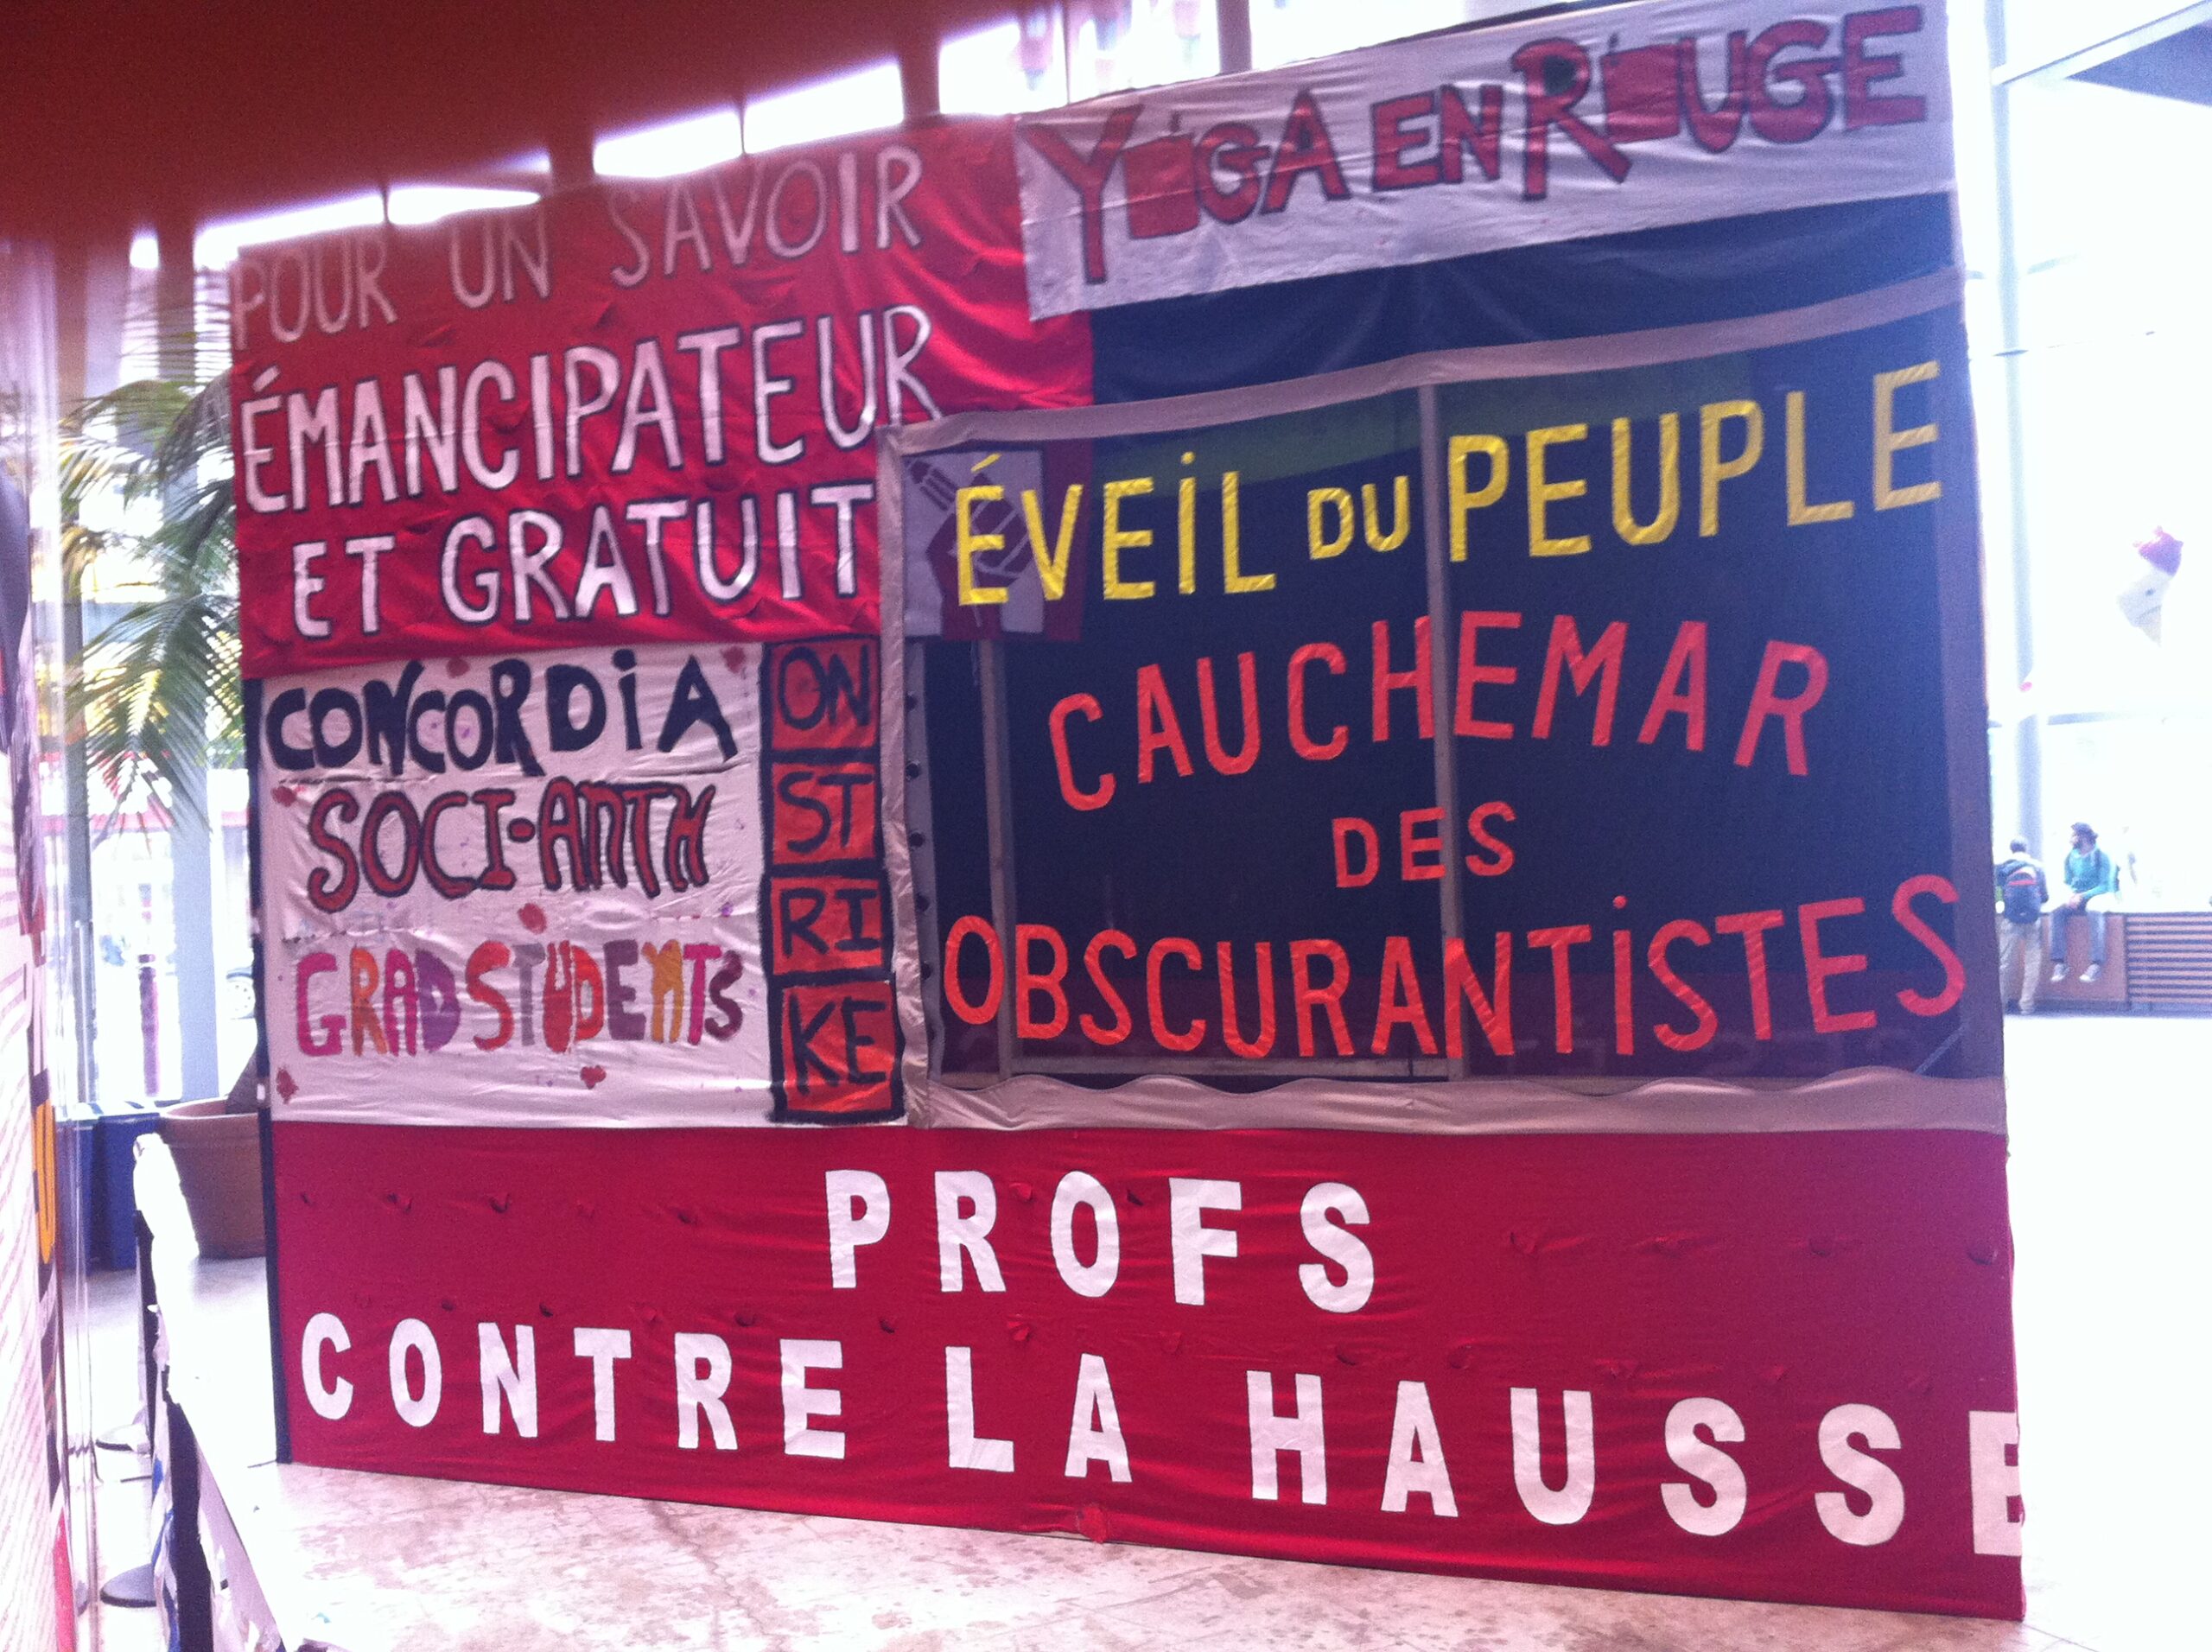 POUR UN SAVOIR
ÉMANCIPATEUR
ET GRATUIT
YOGA EN ROUGE
ÉVEIL DU PEUPLE
CAUCHEMAR
DES
OBSCURANTISTES
CONCORDIA
SOCI-ANTH
GRAD STUDENTS
ON
ST
RI
KE
PROFS
CONTRE LA HAUSSE